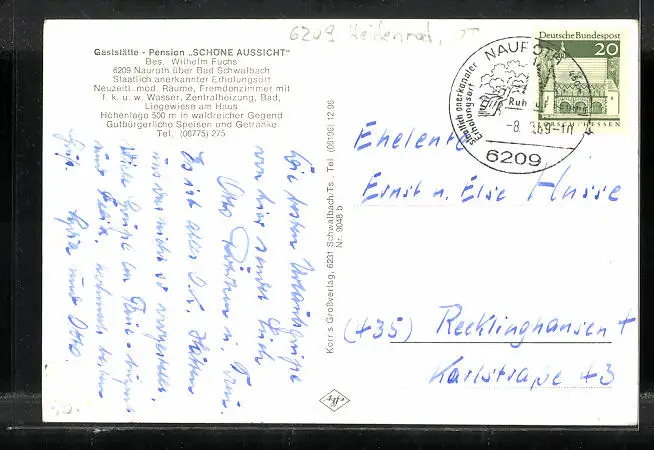 6209 Heidenrod, OT
Gaststätte - Pension „SCHÖNE AUSSICHT"
Bes. Wilhelm Fuchs
6209 Nauroth über Bad Schwalbach
Staatlich anerkannter Erholungsort
Neuzeitl. mod. Räume, Fremdenzimmer mit
f. k. u. w. Wasser, Zentralheizung, Bad,
Liegewiese am Haus
Höhenlage 500 m in waldreicher Gegend
Gutbürgerliche Speisen und Getränke
Tel. (06775) 275
Die besten Urlaubsgrüße
von hier sendet Euch
Otto
Es ist alles O.K. Hätten
uns das nicht so vorgestellt.
Viele Grüße
und
Otto
Korr's Großverlag, 6231 Schwalbach/Ts., Tel. (06196) 12 06
Nr. 9048 b
afs
Deutsche Bundespost
20
LORSCH/HESSEN
NAUROTH
staatlich anerkannter
Erholungsort
Ruh
-8. 69-10
6209
Eheleute
Ernst u. Else Husse
(435) Recklinghausen
Karlstraße 43